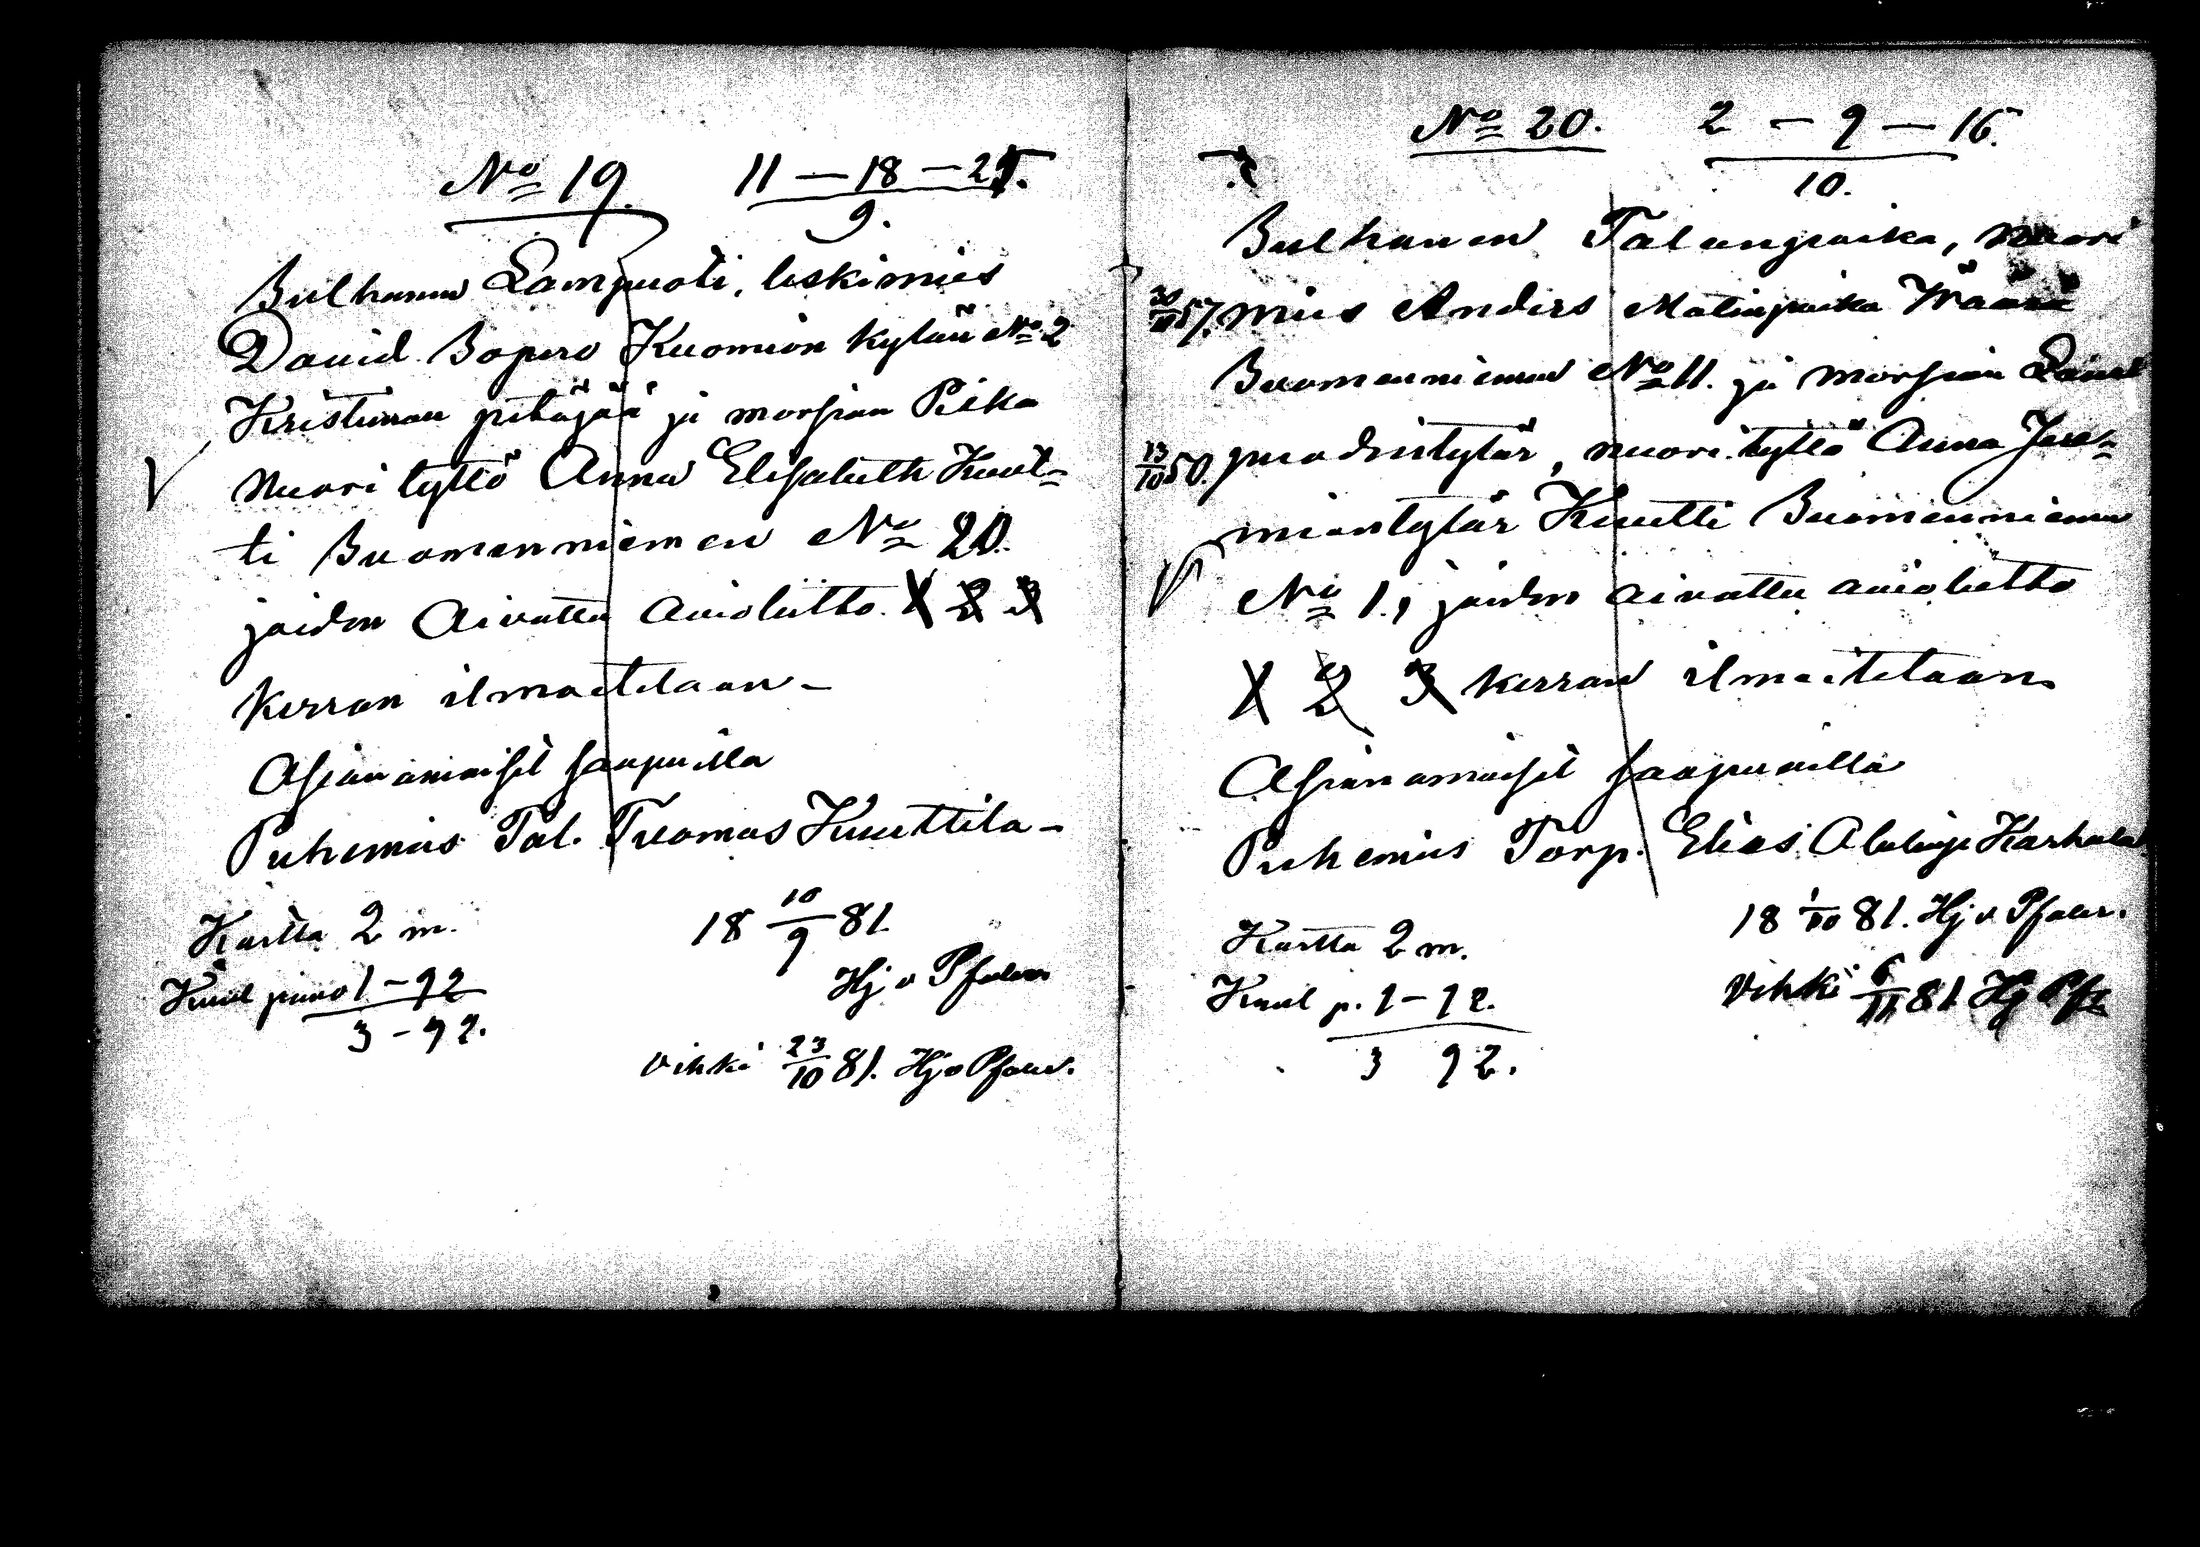 No 19. 11 – 18 – 25.
9.
Sulhanen Lampuoti, leskimies
David Sopero Kuomion kylän No 2
Kristiinan pitäjää ja morsian Piika
nuori tyttö Anna Elisabeth Kuut-
ti Suomenniemen No 20.
joiden Aivottu avioliitto X 2 3
Kerran ilmoitetaan –
Asianomaiset saapuilla
Puhemies Tal. Tuomas Kuuttila –
Kartta 2 m. 18 10/9 81.
Hj v Pfaler
Kuul puno 1 – 92
3 – 92.
Vihki 23/10 81. Hj v Pfaler.
No 20. 2 – 9 – 16.
10.
Sulhanen Talonpoika, nuori
57. mies Anders Matinpoika Wäänä
Suomenniemen No 11. ja morsian
13/10 50. puodintytär, nuori tyttö Anna Jere-
miantytär Kuutti Suomenniemen
No 1., joiden aivottu avioliitto
X 2 3 kerran ilmoitetaan
Asianomaiset saapuvilla
Puhemies Torp. Elias Karhula
Kartta 2 m. 18 1/10 81. Hj v Pfaler.
Kuul p. 1 – 92. Vihki 6/11 81 Hj Pfr
3 92.